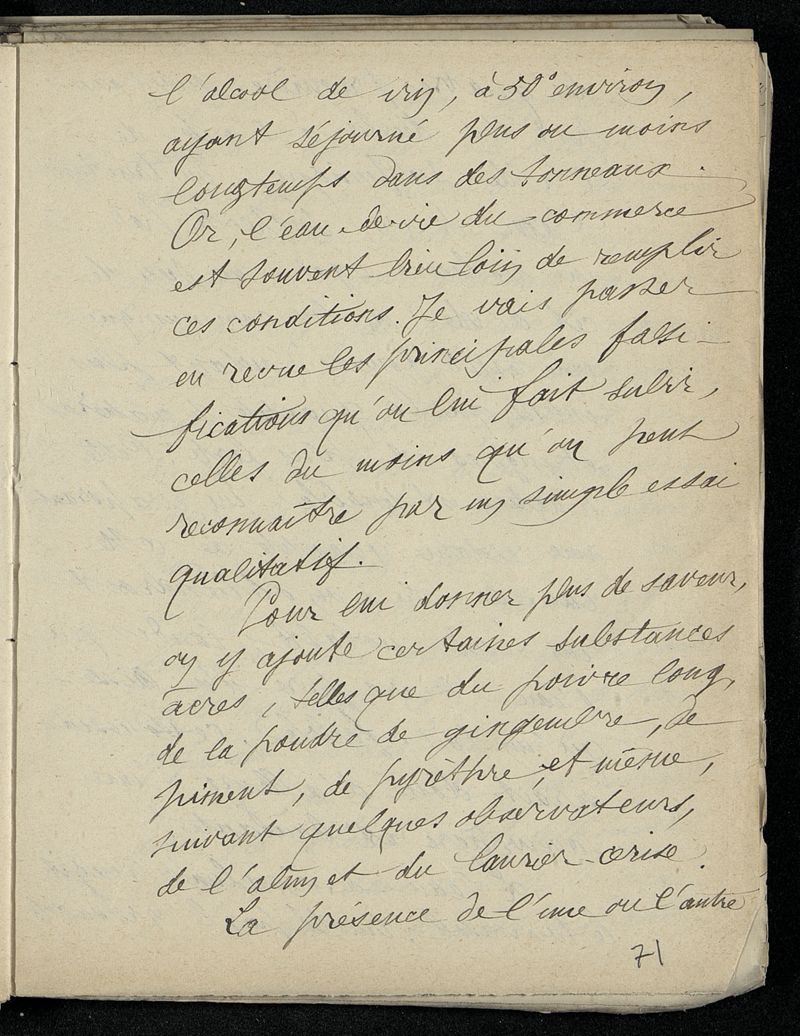 l'alcool de vin, à 50° environ,
ayant séjourné plus ou moins
longtemps dans des tonneaux.
Or, l'eau-de-vie du commerce
est souvent bien loin de remplir
ces conditions. Je vais passer
en revue les principales falsi-
fications qu'on lui fait subir,
celles du moins qu'on peut
reconnaître par un simple essai
qualitatif.
Pour lui donner plus de saveur,
on y ajoute certaines substances
âcres, telles que du poivre long,
de la poudre de gingembre, de
piment, de pyrèthre, et même,
suivant quelques observateurs,
de l'alun et du laurier-cerise.
La présence de l'une ou l'autre
71